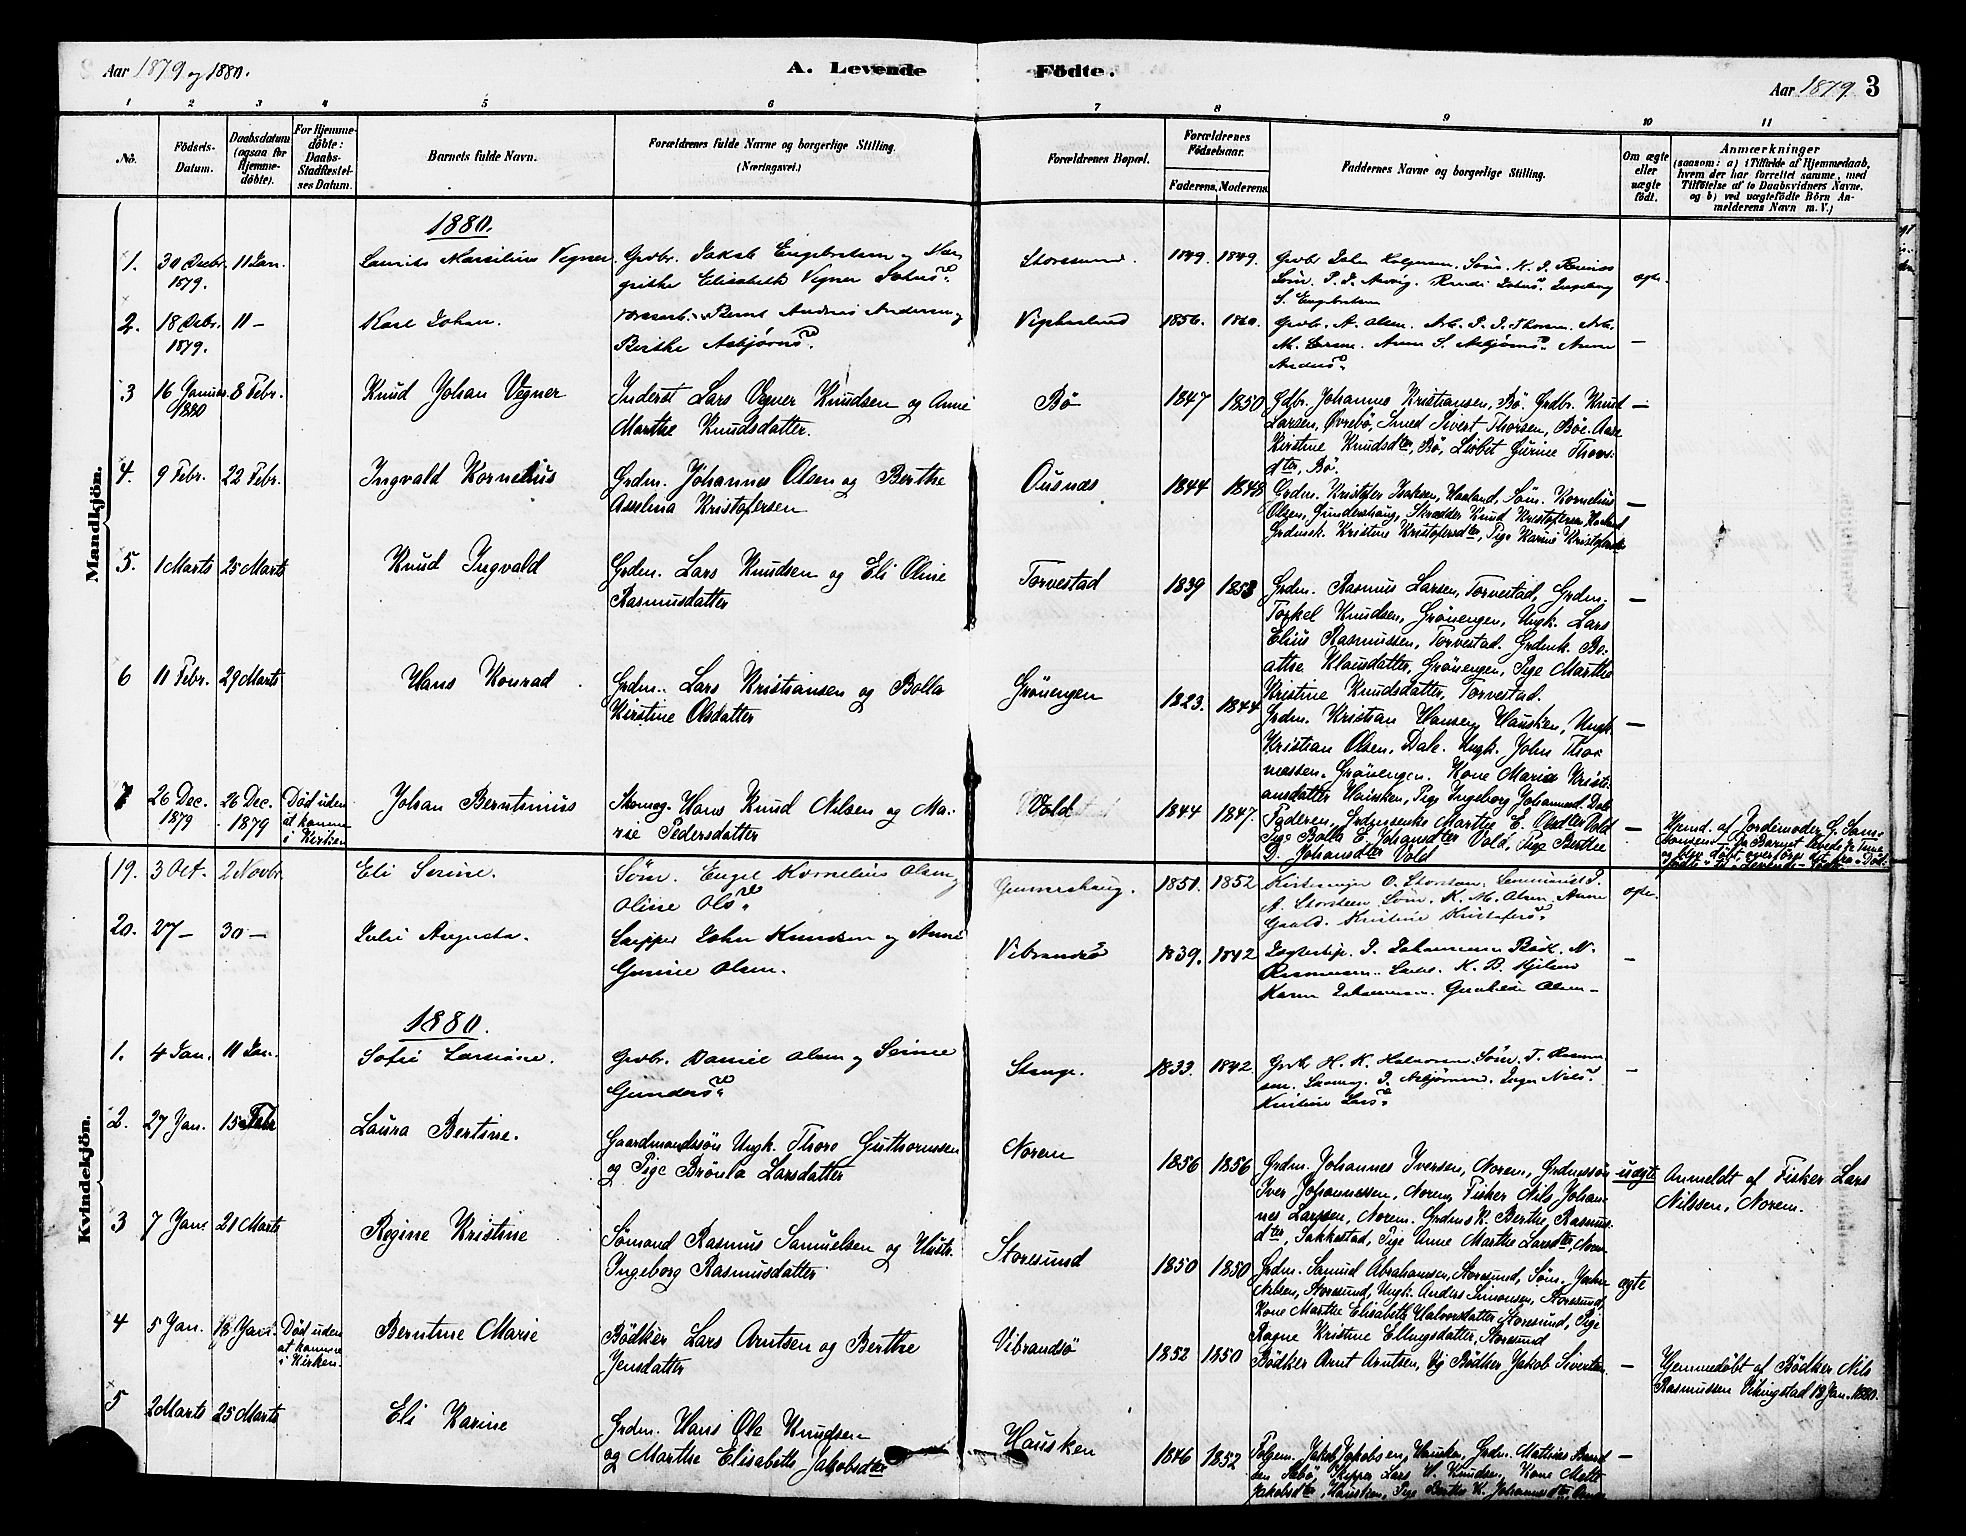 Aar 1879 og 1880.
A. Levende Födte.
Aar 1879
3
1 2 3 4 5 6 7 8 9 10 11
No.
Födsels-
Datum.
Daabsdatum
(ogsaa for
Hjemme-
döbte).
For Hjemme-
döbte:
Daabs-
Stadfæstel-
ses Datum.
Barnets fulde Navn.
Forældrenes fulde Navne og borgerlige Stilling.
(Næringsvei.)
Forældrenes Bopæl.
Forældrenes
Födselsaar.
Faderens. Moderens.
Faddernes Navne og borgerlige Stilling.
Om ægte
eller
uægte
födt.
Anmærkninger
(saasom: a) i Tilfælde af Hjemmedaab,
hvem der har forrettet samme, med
Tilföielse af to Daabsvidners Navne.
og b) ved uægtefödte Börn An-
melderens Navn m. V.)
Mandkjön.
1880.
1. 30 Decbr. 1879. 11 Jan.
Laurits Marsilius Vegner
Grdbr. Jakob Engebretsen og Mar-
grethe Elisabeth Vegner
Storesund
1849. 1849.
S. Engebretsen
ægte.
2. 18 Decbr. 1879. 11 —
Karl Johan.
Bernt Andreas Andersen og
Berthe Asbjørnsd.
1856. 1860.
—
3 16 Januar 1880 8 Febr.
Knud Johan Vegner
Inderst Lars Vegner Knudsen og Anne
Marthe Knudsdatter.
Bö
1847 1850
Gdbr. Johannes Kristiansen, Bö. Grdbr. Knud
Larsen, Øvrebö, Smed Sivert Thorsen, Böe. Aase
Kirstine Knudsdter, Bö, Lisbet Gurine Thors-
dter, Bö.
—
4. 9 Febr. 22 Febr.
Ingvald Kornelius
Grdm. Johannes Olsen og Berthe
Asselina Kristofersen
Ousnes
1844 1848
Grdm. Kristofer Isaksen, Haaland, Söm. Kornelius
Olsen, Gundershaug, Skrædder Knud Kristofersen Haaland
Grdmsk. Kristine Kristofersdter, Pige Karine Kristofersdtr
—
5. 1 Marts 25 Marts
Knud Ingvald
Grdm. Lars Knudsen og Eli Oline
Rasmusdatter
Torvestad
1839 1853
Grdm. Rasmus Larsen, Torvestad, Grdm.
Torkel Knudsen, Grönengen, Ungk. Lars
Elius Rasmussen, Torvestad. Grdmk. Be-
athe Klausdatter, Grönengen, Pige Marthe
Kristine Knudsdatter, Torvestad.
—
6 11 Febr. 29 Marts
Hans Konrad
Grdm. Lars Kristiansen og Bolla
Kirstine Olsdatter
Grönengen
1823. 1844
Grdm. Kristian Hansen, Hausken, Ungk.
Kristian Olsen, Dale. Ungk. John Tho-
massen, Grönengen. Kone Maria Kristi-
ansdatter Hausken, Pige Ingeborg Johannesd. Dale
—
7 26 Dec. 1879 26 Dec. 1879
Död uden
at komme
i Kirken
Johan Berntinius
Skomag. Hans Knud Nilsen og Ma-
rie Pedersdatter
Vold
1844 1847.
Faderen, Grdmsenke Marthe E. Olsdter Vold
Pige Bolla E. Johansdter Vold, Pige Berthe
D. Johansdter Vold
—
Hjemd. af Jordemoder G. Sam-
Kvindekjön.
19. 3 Oct. 2 Novbr.
Eli Serine.
Söm. Engel Kornelius Olsen og
Oline Olsd.
Gunnershaug.
1851. 1852
ægte.
20. 27 — 30 —
Julie Augusta.
Skipper John Knudsen og Anne
Gurine Olsen.
Vibrandsö
1839. 1842
—
1880.
1. 4 Jan. 11 Jan.
Sofie Larsine.
Grdbr. Daniel Olsen og Serine
Gundersd.
Stange.
1833. 1842
Kristine Larsd.
—
2. 27 Jan. 15 Febr
Laura Bertine.
Gaardmandssön Ungk. Thore Guthormsen
og Pige Brönla Larsdatter
Norem
1856 1856
Grdm. Johannes Iversen, Norem, Grdmssön
Iver Johannessen, Norem, Fisker Nils Johan-
nes Larssen, Norem. Grdms K. Berthe Rasmus-
dter, Sakkestad, Pige Anne Marthe Larsdter, Norem
uægte
Anmeldt af Fisker Lars
Nilssen, Norem.
3 7 Jan. 21 Marts
Regine Kristine
Sömand Rasmus Samuelsen og Hustr.
Ingeborg Rasmusdatter
Storesund
1850 1850
Grdm. Samuel Abrahamsen, Storesund, Söm. John
Nilsen, Storesund, Ungk. Anders Simonsen, Storesund,
Kone Marthe Elisabeth Halvorsdatter, Storesund, Pige
Ragne Kristine Ellingsdatter, Storesund
ægte
4 5 Jan. 18 Jan.
Död uden
at komme
i Kirken.
Berntine Marie
Bödker Lars Arntsen og Berthe
Jensdatter
Vibrandsö
1852 1850
Bödker Arnt Arntsen, Og Bödker Jakob Sivertsen
—
Hjemmedöbt af Bödker Nils
Rasmussen Vikingstad 18 Jan. 1880.
5 2 Marts 25 Marts
Eli Karine
Grdm. Hans Ole Knudsen
og Marthe Elisabeth Jakobsdter
Hausken
1846 1852
Folgem. Jakob Jakobsen, Hausken, Grdm. Mathias Knud-
sen Sæbö, Skipper Lars H. Knudsen, Kone Mette
Jakobsdter, Hausken, Pige Berthe K. Johannesdter,
—